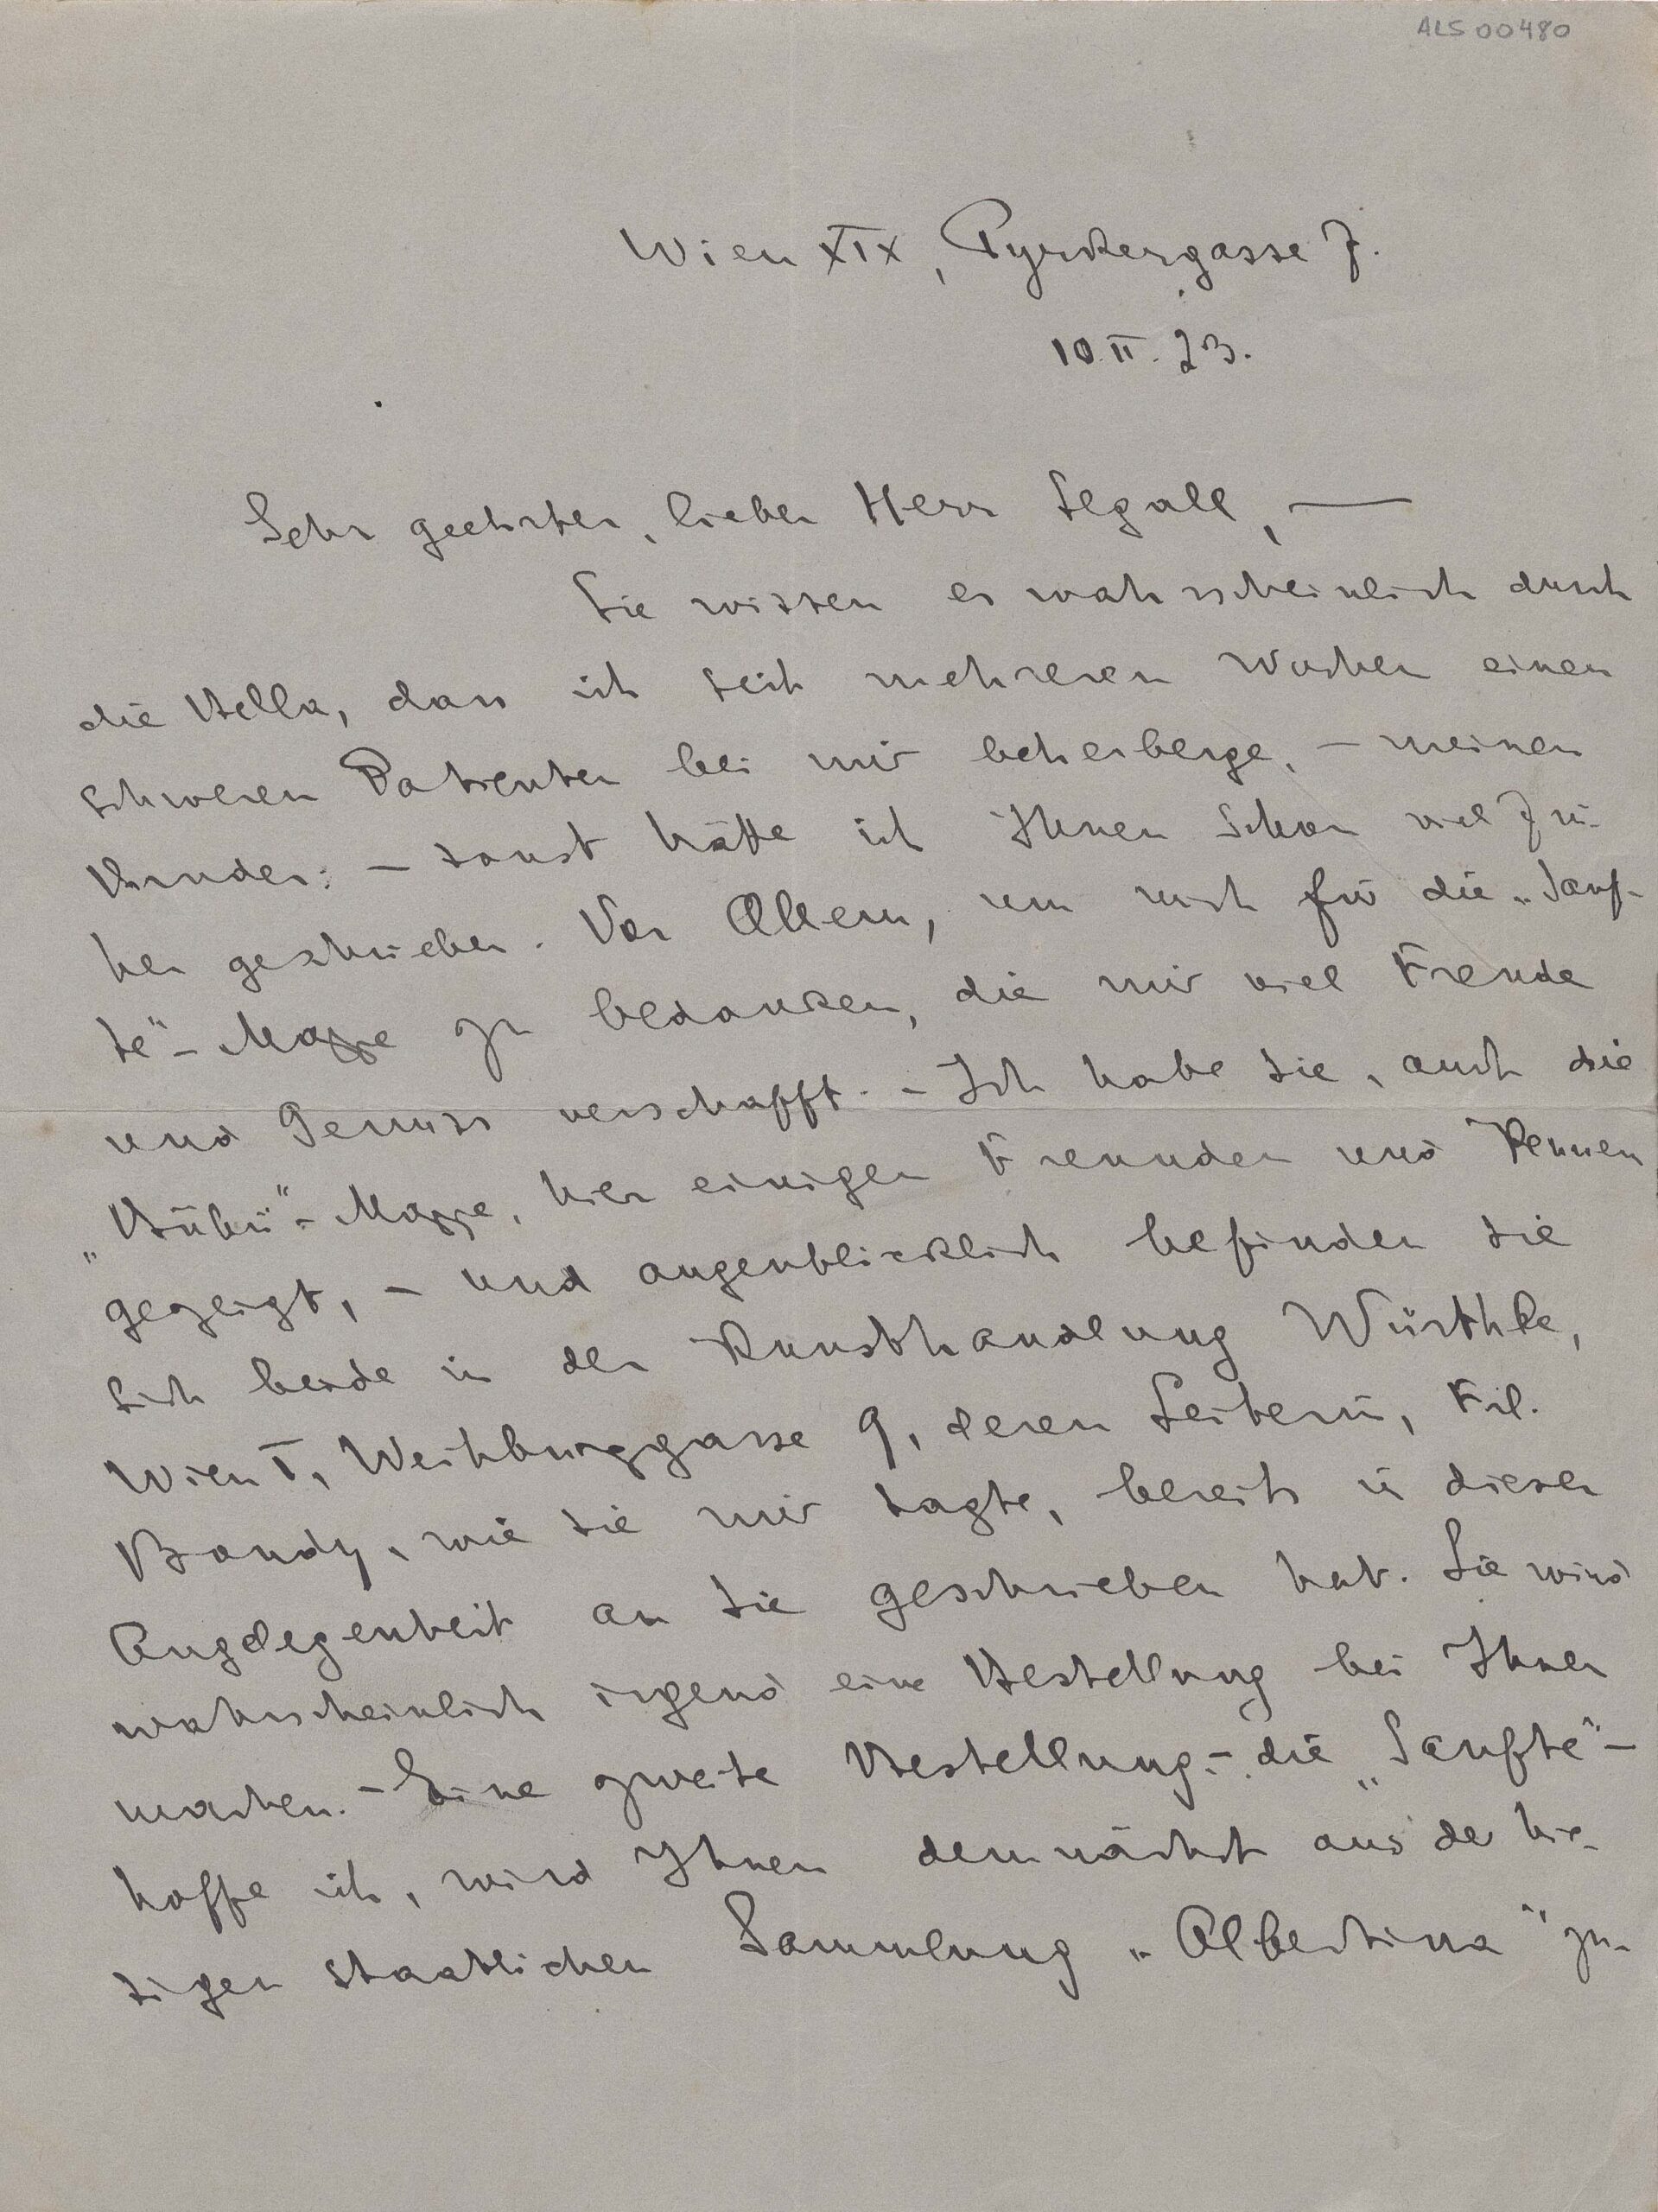 ALS 00480
Wien XIX, Pyrkergasse 7.
10. II. 23.
Sehr geehrter, lieber Herr Segall, —
Sie wissen es wahrscheinlich durch
die Bella, dass ich seit mehreren Wochen einen
schweren Patienten bei mir beherberge, – meinen
Bruder: – sonst hätte ich Ihnen schon viel frü-
her geschrieben. Vor Allem, um mich für die „Sanf-
te“-Mappe zu bedanken, die mir viel Freude
und Genuss verschafft. – Ich habe sie, auch die
„Bübü“-Mappe, hier einigen Freunden und Kennern
gezeigt, – und augenblicklich befinden sie
sich beide in der Kunsthandlung Würthle,
Wien I, Weihburggasse 9, deren Leiterin, Frl.
Bondy, wie sie mir sagte, bereits in dieser
Angelegenheit an Sie geschrieben hat. Sie wird
wahrscheinlich irgend eine Bestellung bei Ihnen
machen. – Eine zweite Bestellung – die „Sanfte“ –
hoffe ich, wird Ihnen demnächst aus der hie-
sigen staatlichen Sammlung „Albertina“ zu-